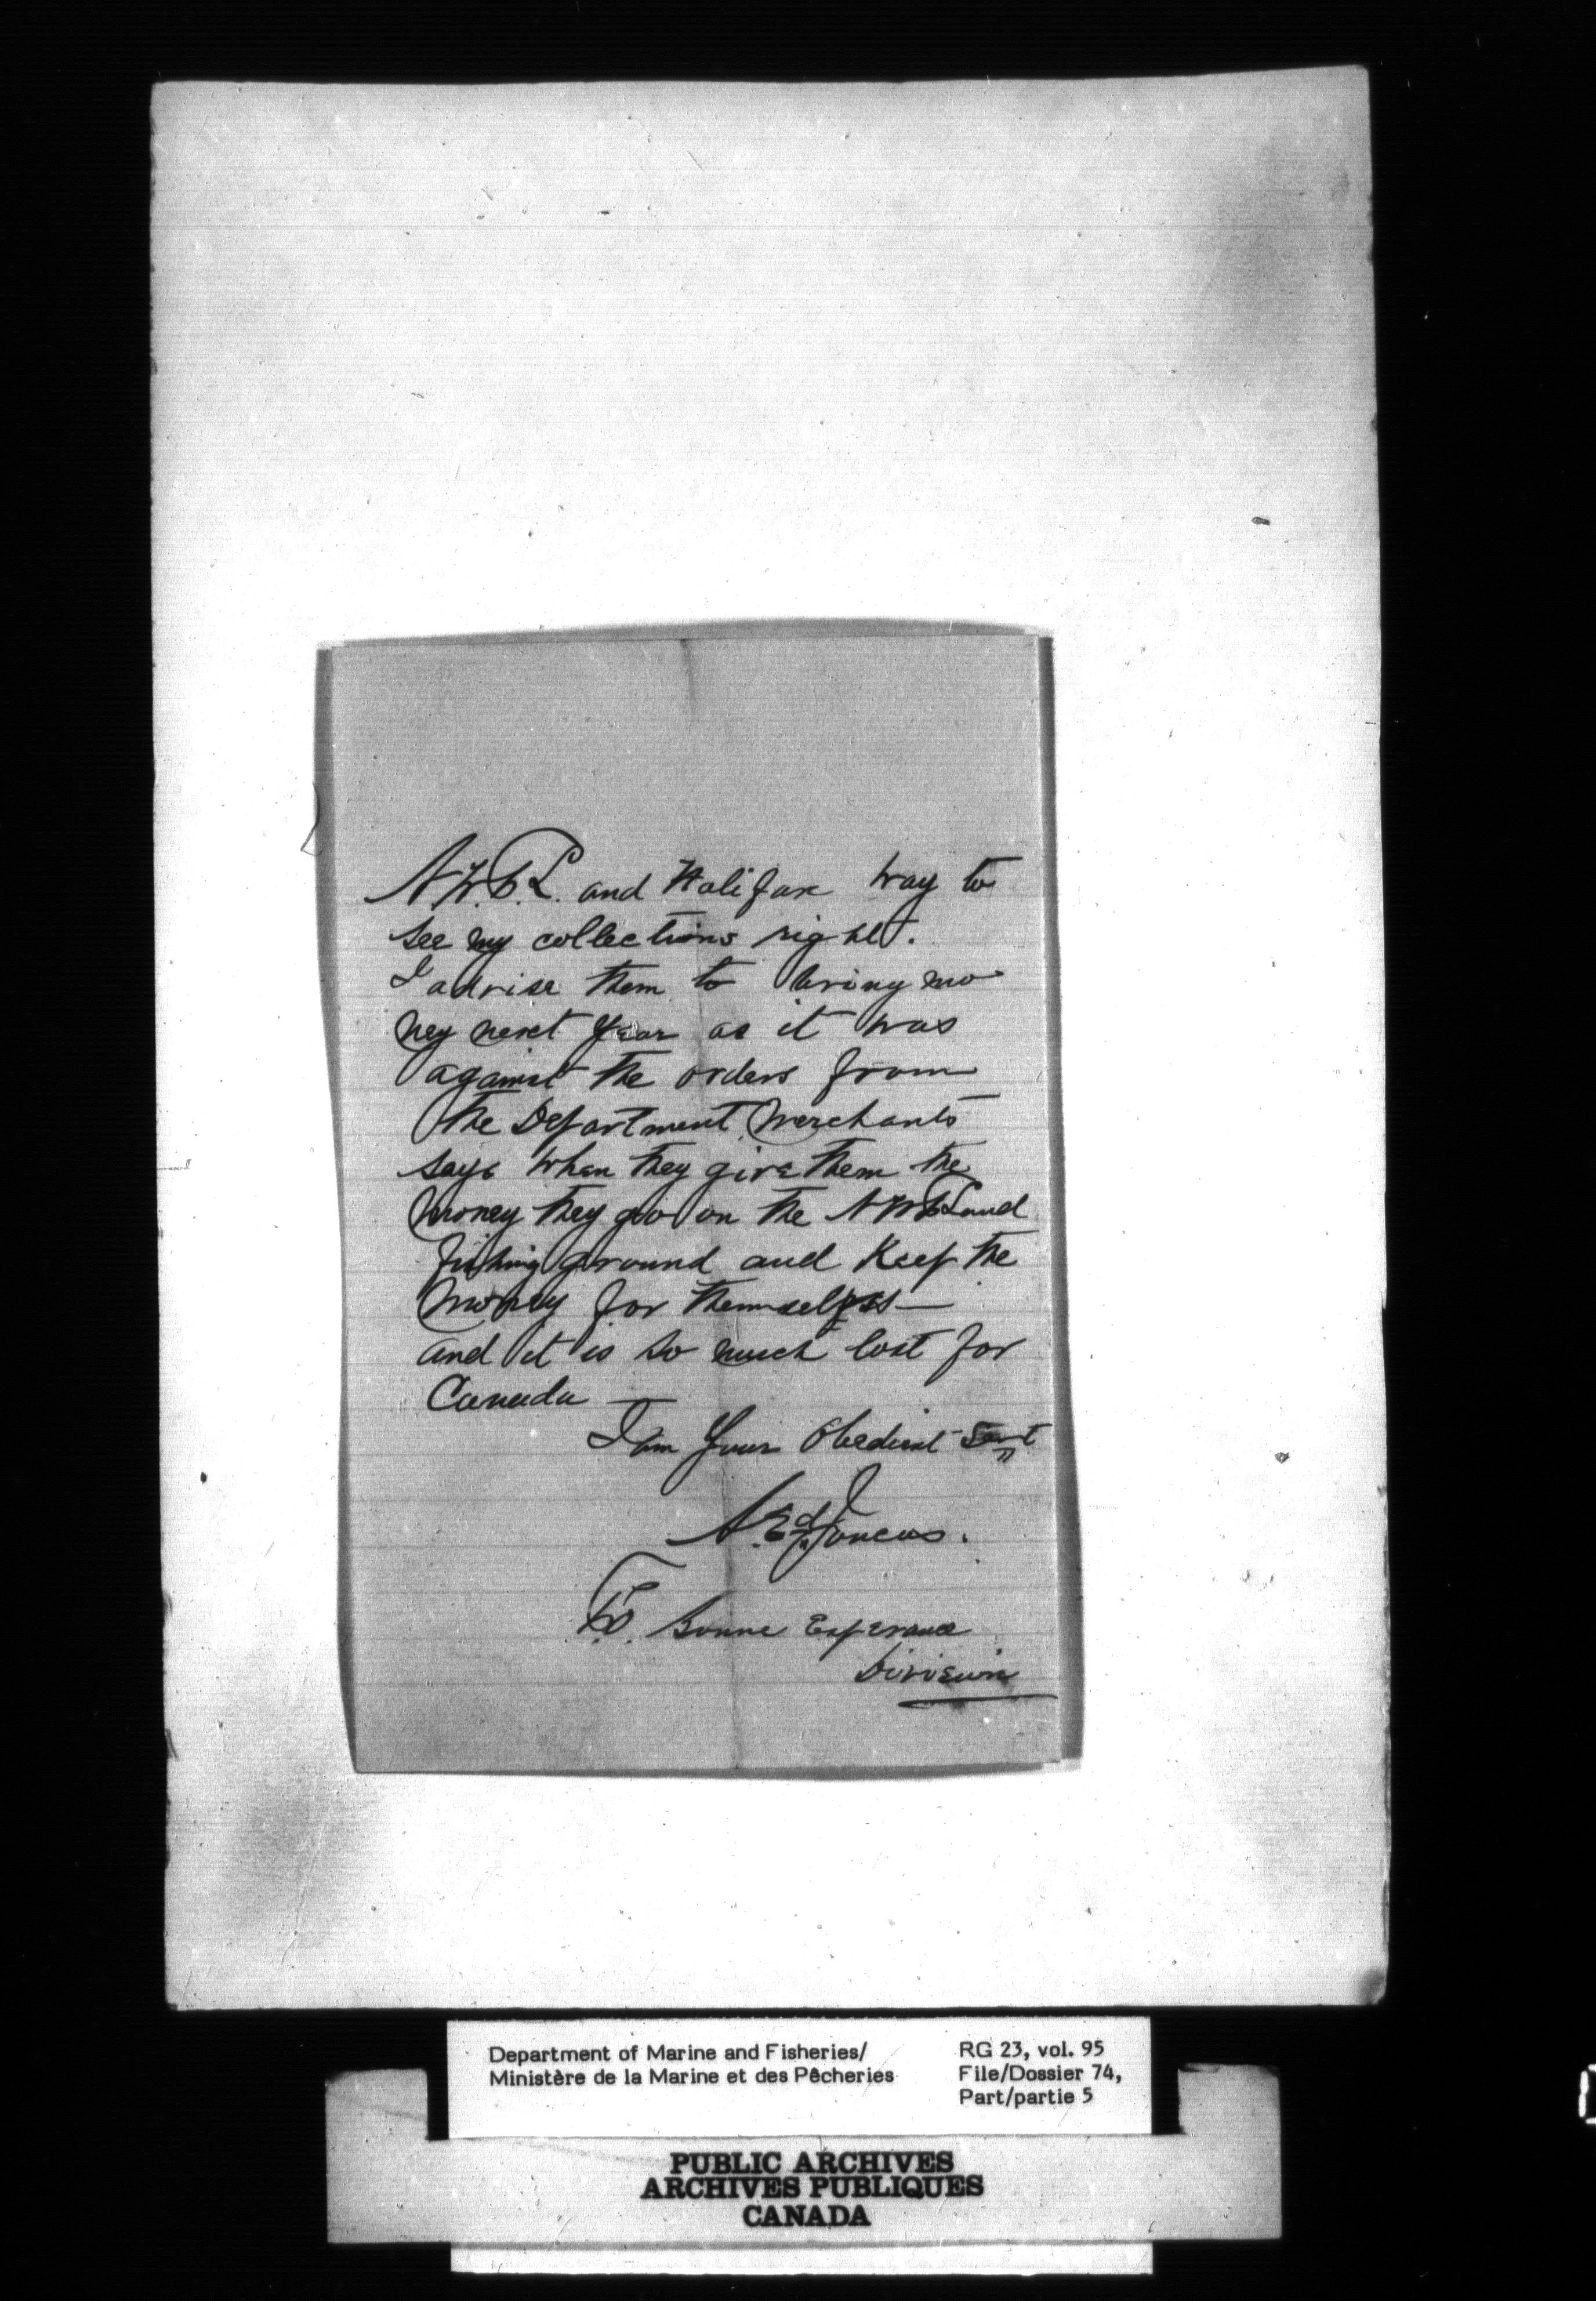 N.F.D.L. and Halifax way to
see my collections right.
I advise them to bring mo
ney next year as it was
against the orders from
the Department. Merchants
says when they give them the
money they go on the NFDLand
fishing ground and Keep the
money for themselves—
and it is so much lost for
Canada —
I am Your Obedient Servt
A. Ed Joncas.
F.O. Bonne Esperance
Division
Department of Marine and Fisheries/
Ministère de la Marine et des Pêcheries
RG 23, vol. 95
File/Dossier 74,
Part/partie 5
PUBLIC ARCHIVES
ARCHIVES PUBLIQUES
CANADA